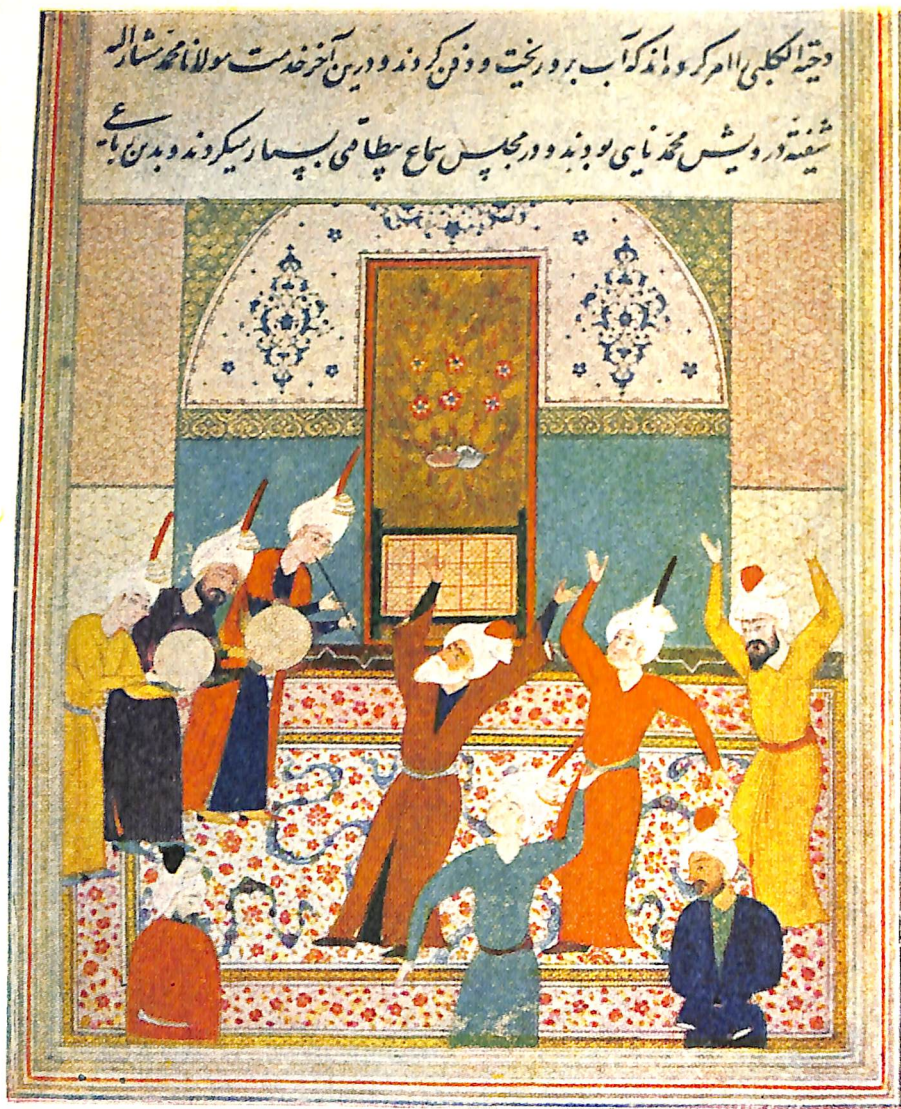 دحیة الکلبی را امر کرده‌اند که آب برو ریخت و دفن کردند و درین آخر خدمت مولانا محمد مشارالیه
شیفتهٔ درویش محمد نایی بودند و در مجلس سماع بیطاقتی بسیار میکردند و بدین رباعی